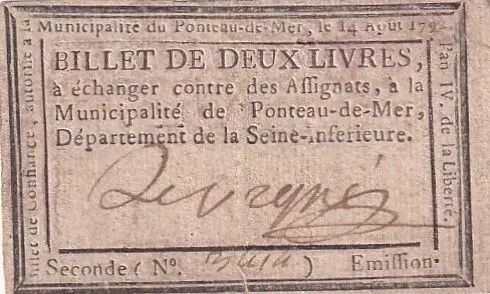 Municipalité du Ponteau-de-Mer, le 14 Août 179
BILLET DE DEUX LIVRES,
à échanger contre des Assignats, à la
Municipalité de Ponteau-de-Mer,
Département de la Seine-inferieure.
Seconde ( N°. ) Emission.
Billet de Confiance, autorisé à la
l'an IV. de la Liberté.